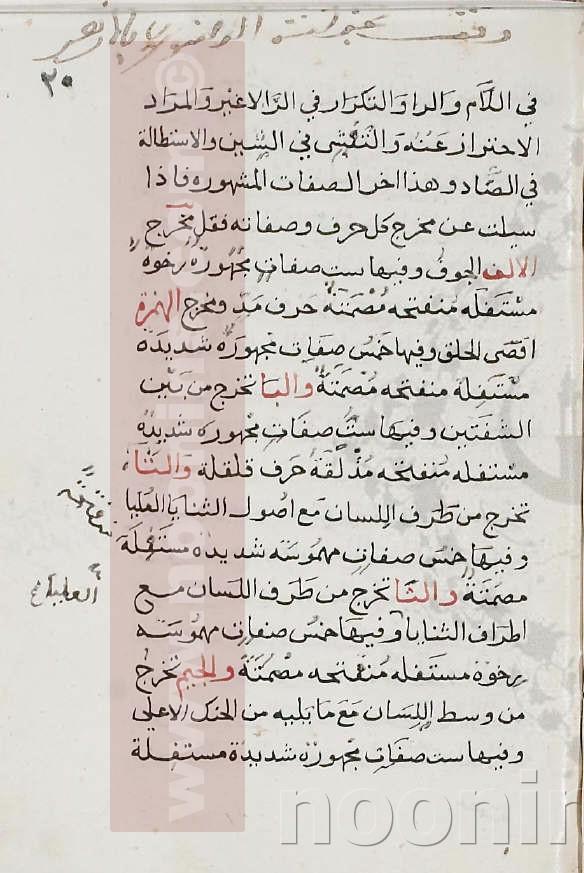 وقف
٢٠
في اللام والرا والتكرار في الرا لا غير والمراد
الاحتراز عنه والتفشي في الشين والاستطالة
في الضاد وهذا اخر الصفات المشهوره فاذا
سيلت عن مخرج كل حرف وصفاته فقل مخرج
الالف الجوف وفيها ست صفات مجهورة رخوة
مستفله منفتحه مصمتة حرف مد ومخرج الهمزة
اقصى الحلق وفيها خمس صفات مجهورة شديدة
مستفلة منفتحه مصمتة والبا تخرج من بين
الشفتين وفيها ست صفات مجهوره شديدة
مستفله منفتحه مذلقة حرف قلقلة والتا
تخرج من طرف اللسان مع اصول الثنايا العليا
وفيها خمس صفات مهموسه شديدة مستفلة
منفتحة
مصمتة والثا تخرج من طرف اللسان مع
العليا
اطراف الثنايا وفيها خمس صفات مهموسه
رخوة مستفله منفتحه مصمتة والجيم تخرج
من وسط اللسان مع ما يليه من الحنك الاعلى
وفيها ست صفات مجهورة شديدة مستفلة
noonin